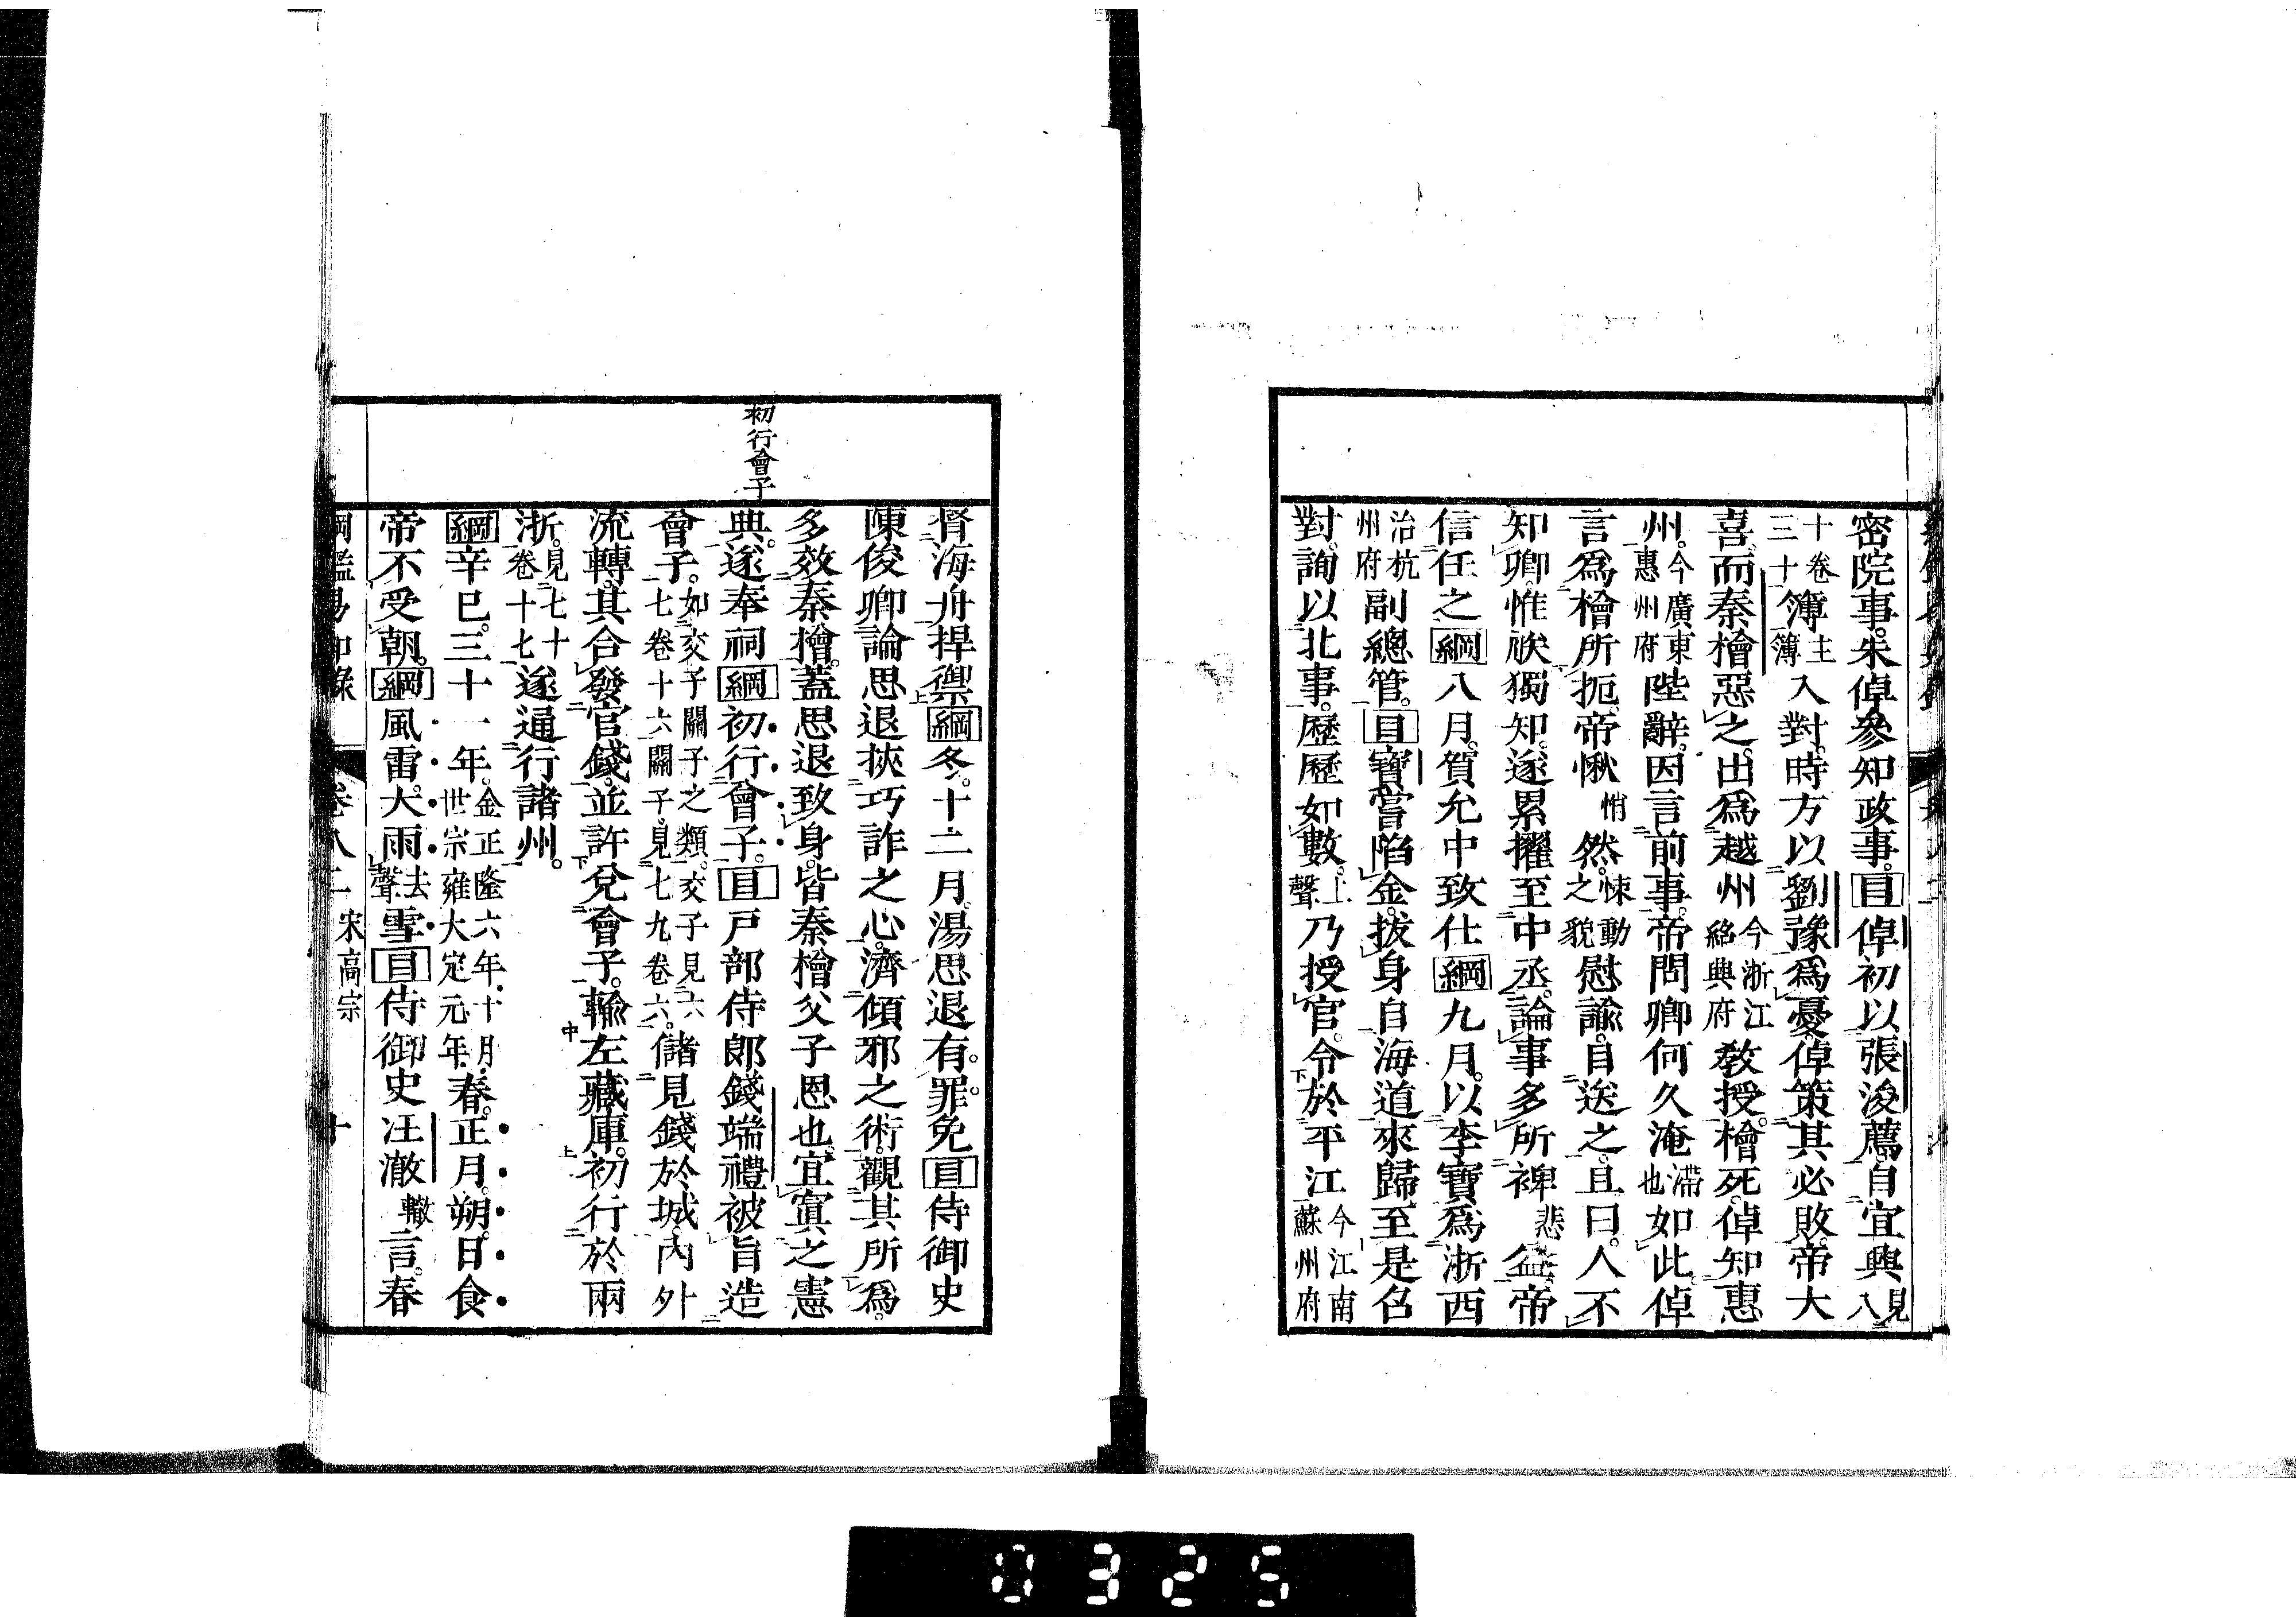 密院事。朱倬參知政事。目倬初以張浚薦。自宜興見八
十卷三十簿主簿入對。時方以劉豫爲憂。倬策其必敗。帝大
喜。而秦檜惡之。出爲越州今浙江紹興府教授。檜死。倬知惠
州。今廣東惠州府陛辭。因言前事。帝問卿何久淹滯也如此。倬
言爲檜所扼。帝愀悄然。悚動之貌慰諭。目送之。且曰。人不
知卿。惟朕獨知。遂累擢至中丞。論事多所裨悲益。帝
信任之綱八月。賀允中致仕綱九月。以李寶爲浙西
治杭州府副總管。目寶嘗陷金。拔身自海道來歸。至是召
對。詢以北事。歷歷如數。上聲乃授官。令於平江今江南蘇州府
督海舟捍禦綱冬。十二月。湯思退有罪。免目侍御史
陳俊卿論思退挾巧詐之心。濟傾邪之術。觀其所爲。
多效秦檜。蓋思退致身。皆秦檜父子恩也。宜寘之憲
典。遂奉祠綱初行會子。目戸部侍郎錢端禮被旨造
初行會子
會子。如交子關子之類。交子見六七卷十六關子。見七九卷六。儲見錢於城内外
流轉。其合發官錢。並許兌會子。輸左藏庫。初行於兩
浙。見七十卷十七遂通行諸州。
綱辛巳。三十一年。金正隆六年。十月。世宗雍大定元年。春。正月。朔。日食
帝不受朝。綱風雷。大雨去聲雪。目侍御史汪澈轍言。春
綱鑑易知錄 卷八二 宋高宗 十
0325